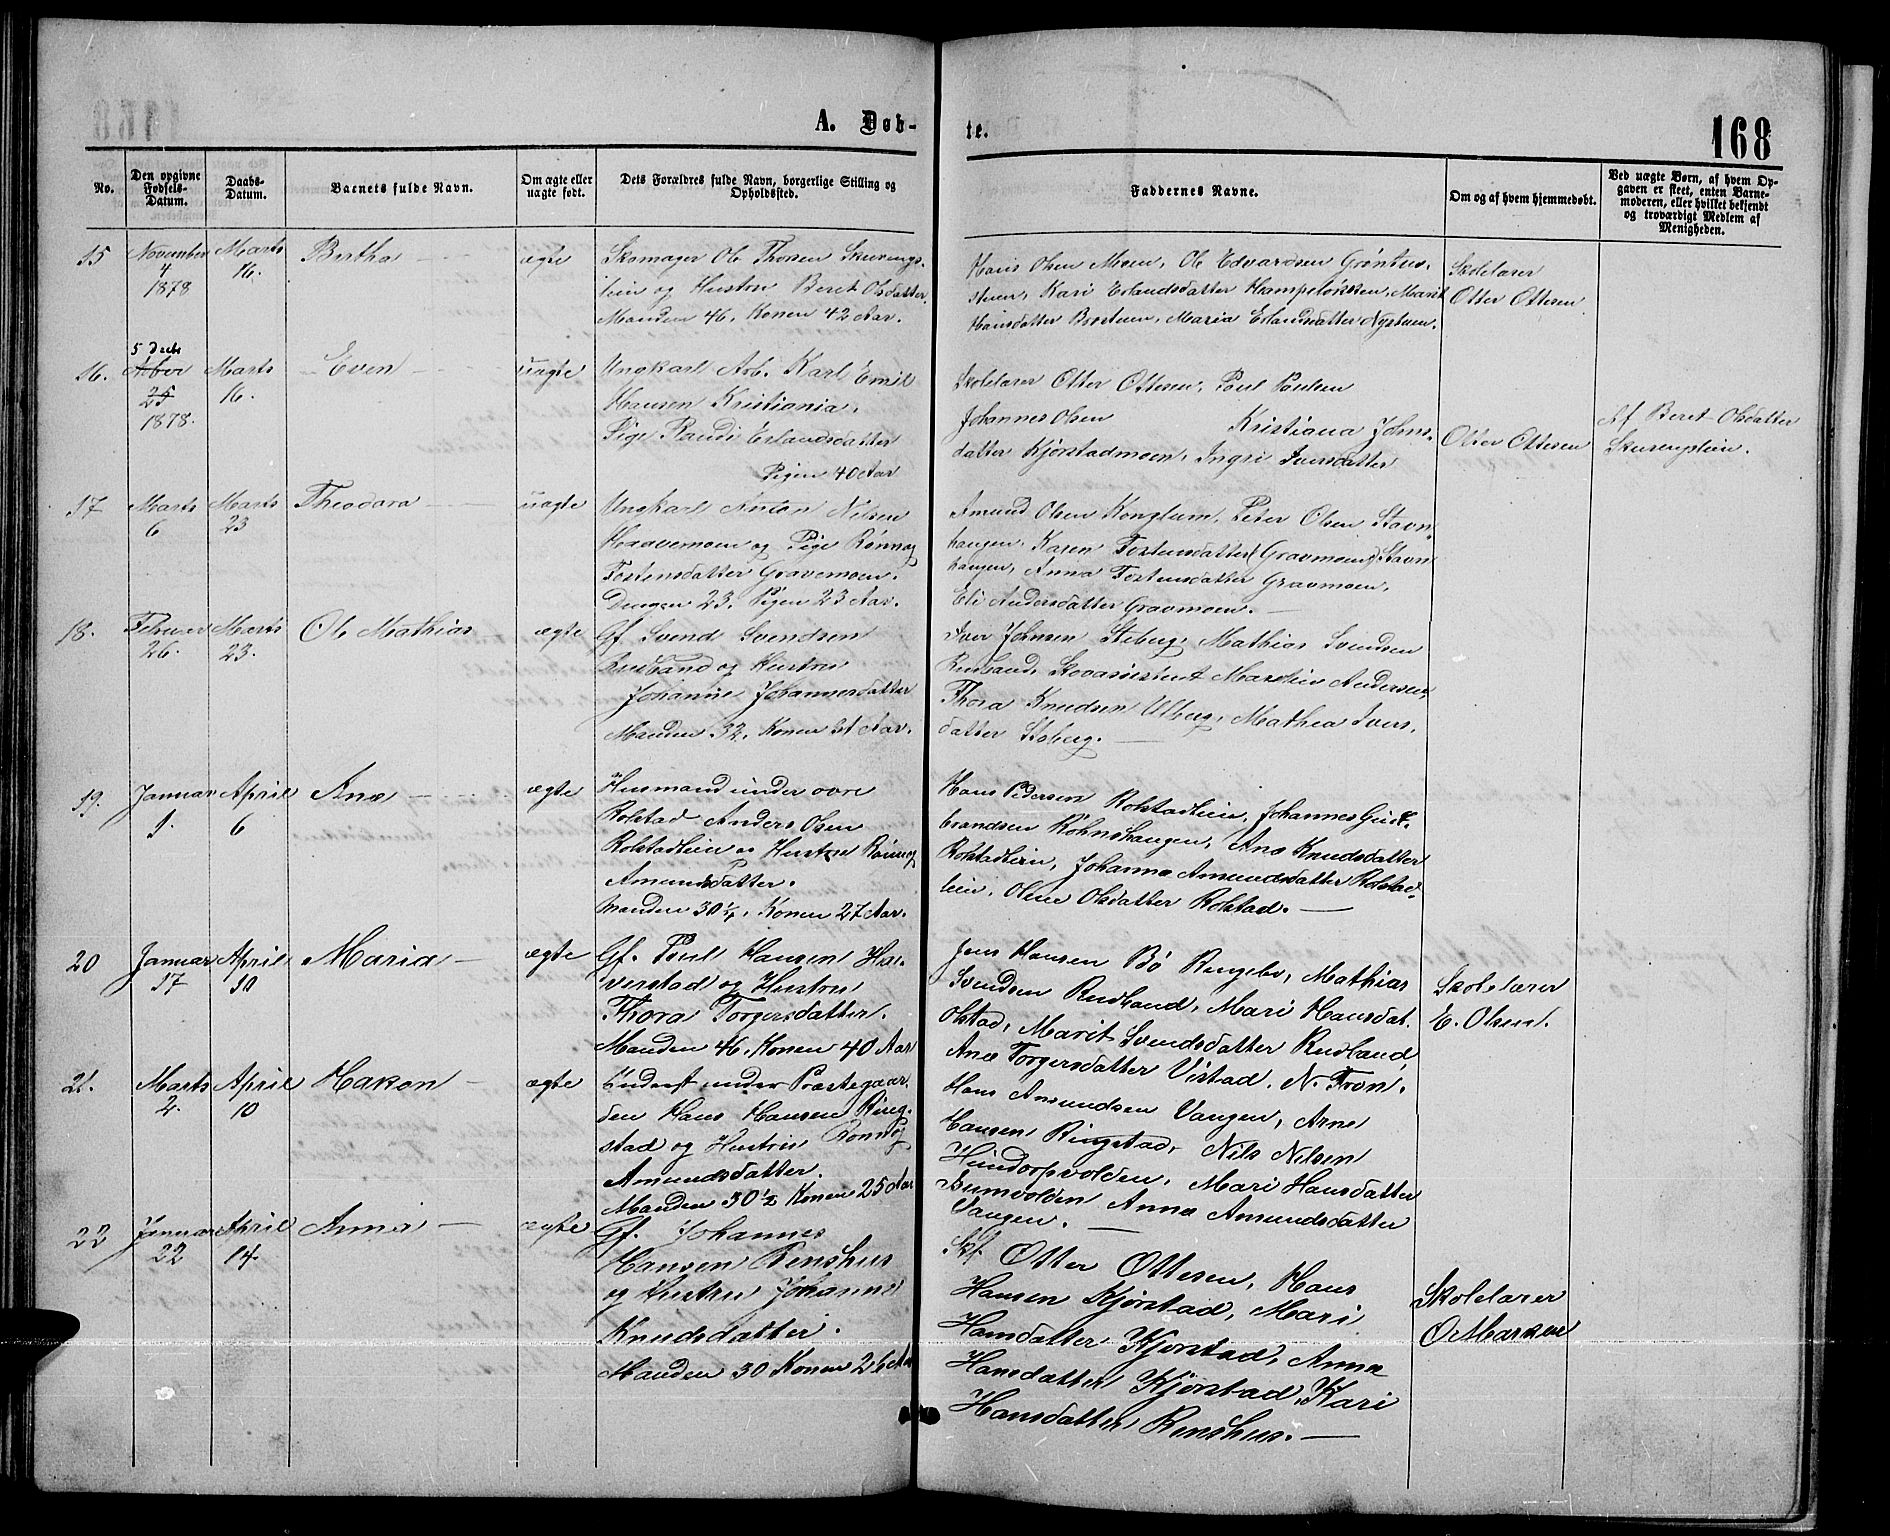 A. Døb-
te.
168
No.
Den opgivne Fødsels-Datum.
Daabs-Datum.
Barnets fulde Navn.
Om ægte eller uagte født.
Dets Forældres fulde Navn, borgerlige Stilling og Opholdssted.
Faddernes Navne.
Om og af hvem hjemmedøbt.
Ved uægte Børn, af hvem Op-
gaven er skeet, enten Barne-
moderen, eller hvilket bekjendt
og troværdigt Medlem af
Menigheden.
15
November 4 1878
Marts 16.
Bertha
ægte
Skomager Ole Thorsen Skurengs-
leien og Hustru Beret Olsdatter.
Manden 46, Konen 42 Aar.
Hans Olsen Moen, Ole Edvardsen Grøntu-
stuen, Kari Erlandsdatter Marit
Hansdatter Maria Erlandsdatter Nystuen.
Skolelærer
Otter Ottesen
16.
5 Decbr
25
1878.
Marts 16.
Even
uægte
Ungkarl Arb. Karl Emil
Hansen Kristiania.
Pige Randi Erlandsdatter
Pigen 40 Aar
Skolelærer Otter Ottesen, Poul Paulsen
Johannes Olsen Kristiana Johns-
datter Kjørstadmoen, Ingri Iversdatter
Otter Ottesen
Af Beret Olsdatter
Skurengsleien.
17
Marts 6
Marts 23
Theodora
uægte
Ungkarl Anton Nilsen
Haavemoen og Pige Rønnog
Tostensdatter Gravemoen.
Drengen 23. Pigen 23 Aar.
Amund Olsen Konglum, Peter Olsen Stavn-
haugen, Karen Tostensdatter (Gravmoen) Stavn
haugen, Anna Tostensdatter Gravmoen,
Eli Andersdatter Gravmoen.
18.
Februar 26.
Marts 23.
Ole Mathias
ægte
Gf. Svend Svendsen
Rudland og Hustru
Johanne Johannesdatter
Manden 32, Konen Aar.
Iver Johnsen Steberg, Mathias Svendsen
Rudland, Skovassistent Andersen,
Thora Knudsen Ulberg, Mathea Ivers-
datter Stoberg.
19.
Januar 1.
April 6
Ane
ægte
Husmand under øvre
Rolstad Anders Olsen
Rolstadleien og Hustru Rønnog
Amundsdatter.
Manden 30 1/4, Konen 27 Aar.
Hans Pedersen Rolstadleien, Johannes Gud-
brandsen Røhnshaugen, Ane Knudsdatter
Rolstadleien, Johanna Amundsdatter Rolstad-
leien, Olene Olsdatter Rolstad.
20
Januar 17
April 10
Maria
ægte
Gf. Poul Hansen Ha-
verstad og Hustru
Thora Torgersdatter.
Manden 46. Konen 40 Aar
Jens Hansen Bø Ringebu, Mathias
Svendsen Rudland, Mari Hansdat.
Olstad, Marit Svendsdatter Rudland,
Ane Torgersdatter Vistad, N. Fron.
Skolelærer
E. Olsen.
21.
Marts 2.
April 10
Hakon
ægte
Inderst under Præstegaar-
den Hans Hansen Ring-
stad og Hustru Rønnog
Amundsdatter.
Manden 30 1/2 Konen 25 Aar
Hans Amundsen Vangen, Arne
Hansen Ringstad, Nils Nilsen
Hundorpvolden, Mari Hansdatter
Anna Amundsdatter
Vangen.
22
Januar 22
April 14.
Anna
ægte
Gf. Johannes
Hansen Renshus
og Hustru Johanne
Knudsdatter.
Manden 30 Konen 26 Aar
Skl Otter Ottesen, Hans
Hansen Kjørstad, Mari
Hansdatter Kjørstad, Anna
Hansdatter Kjørstad, Kari
Hansdatter Renshus.
Skolelærer